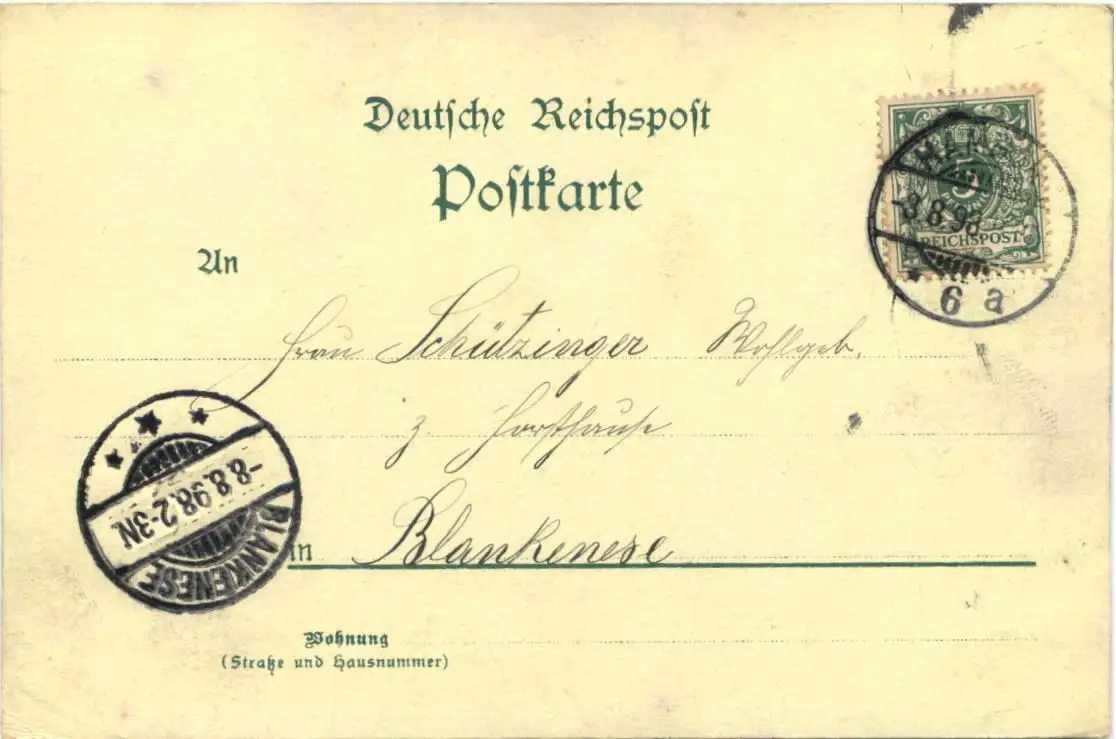 Deutsche Reichspost
Postkarte
HAMB
5
-8.8.98
REICHSPOST
6 a
An
Frau Schützinger Wohlgeb.
z. Forsthause
-8.8.98.2-3N.
BLANKENESE
in Blankenese
Wohnung
(Straße und Hausnummer)